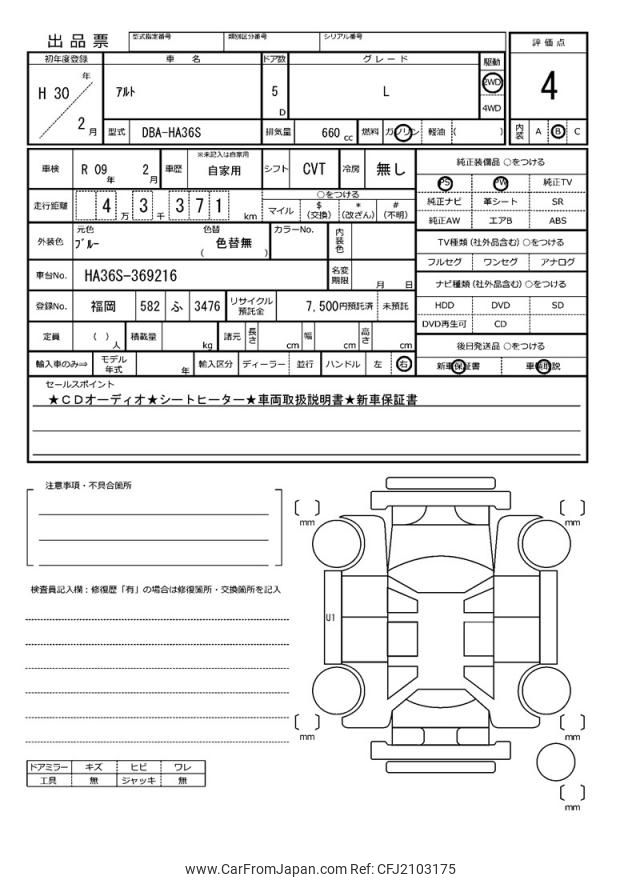 出品票
型式指定番号 類別区分番号 シリアル番号
評価点
4
初年度登録 車名 ドア数 グレード 駆動
H 30 年 2 月
アルト
5 D
L
2WD
4WD
型式 DBA-HA36S 排気量 660 cc 燃料 ガソリン 軽油 ( )
内装 A B C
車検 R 09 年 2 月 車歴 ※未記入は自家用 自家用 シフト CVT 冷房 無し
走行距離 4 万 3 千 3 7 1 km
○をつける
マイル $ (交換) * (改ざん) # (不明)
外装色 元色 ブルー 色替 ( 色替無 ) カラーNo. 内装色
車台No. HA36S-369216 名変期限 月 日
登録No. 福岡 582 ふ 3476 リサイクル預託金 7,500円預託済 未預託
定員 ( ) 人 積載量 kg 諸元 長さ cm 幅 cm 高さ cm
輸入車のみ⇒ モデル年式 年 輸入区分 ディーラー 並行 ハンドル 左 右
純正装備品 ○をつける
PS PW 純正TV
純正ナビ 革シート SR
純正AW エアB ABS
TV種類 (社外品含む) ○をつける
フルセグ ワンセグ アナログ
ナビ種類 (社外品含む) ○をつける
HDD DVD SD
DVD再生可 CD
後日発送品 ○をつける
新車保証書 車輌取説
セールスポイント
★CDオーディオ★シートヒーター★車両取扱説明書★新車保証書
注意事項・不具合箇所
検査員記入欄：修復歴「有」の場合は修復箇所・交換箇所を記入
ドアミラー キズ ヒビ ワレ
工具 無 ジャッキ 無
[ ] mm
[ ] mm
U1
[ ] mm
[ ] mm
[ ] mm
www.CarFromJapan.com Ref: CFJ2103175